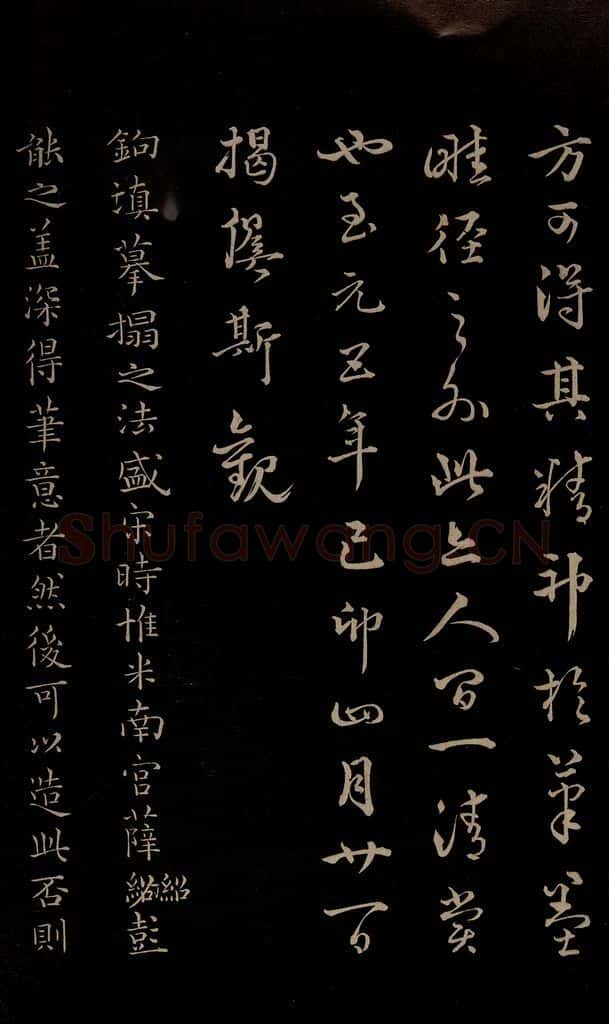 方可得其精神於筆墨
畦徑之外此亦人間一清賞
也至元五年己卯四月廿一日
揭傒斯觀
鉤填摹搨之法盛宋時惟米南宮薛紹彭
能之盖深得筆意者然後可以造此否則
Shufawang.CN